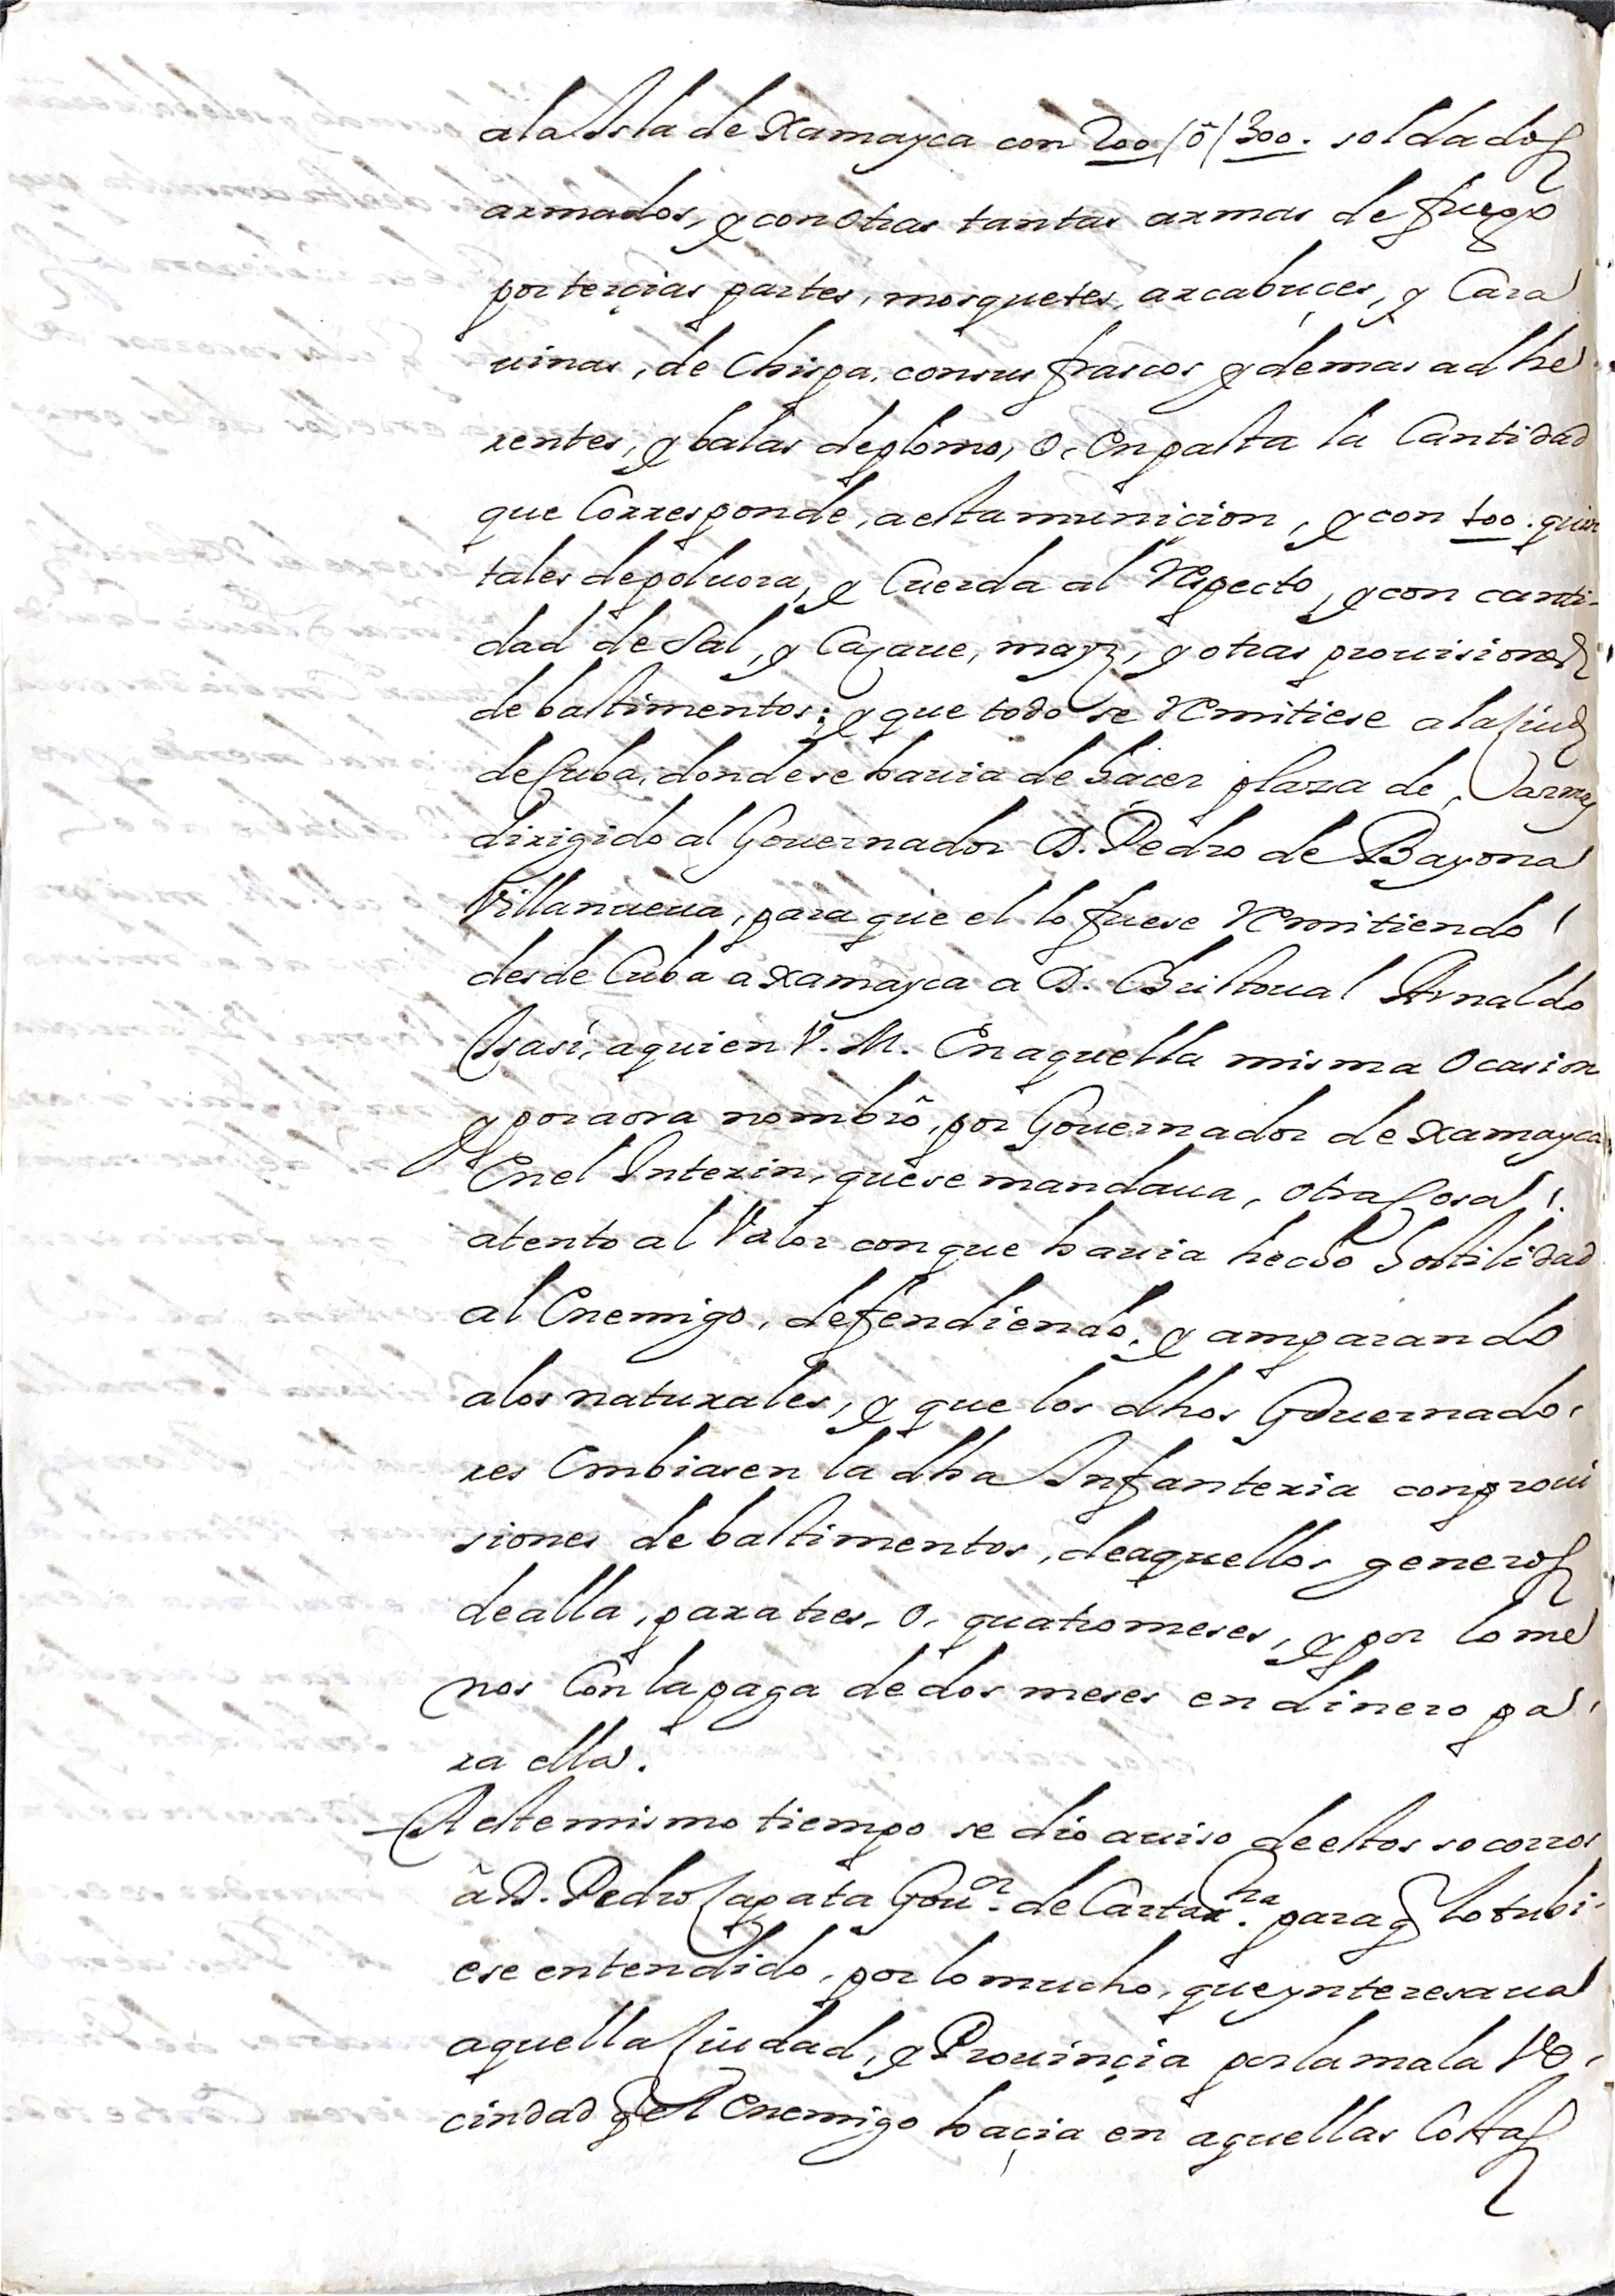 a la Isla de Xamayca con 200 / ô / 300. soldados
armados, y con otras tantas armas de fuego
por terçias partes, mosquetes, arcabuçes, y Cara
uinas, de Chispa, con sus frascos y demas adhe
rentes, y balas de plomo, o, En pasta la Cantidad
que Corresponde, a esta municion, y con 100. quin
tales de poluora, y Cuerda al respecto, y con canti-
dad de sal, y Caçaue, mayz, y otras prouisiones
de bastimentos; y que todo se remitiese a la Ciud
de Cuba, donde se hauia de hacer plaza de Armas
dirigido al Gouernador D. Pedro de Bayona
Villanueua, para que el lo fuese remitiendo
desde Cuba a Xamayca a D. Christoual Arnaldo
Isasi, a quien V. M. En aquella misma Ocasion
y por aora nombrô, por Gouernador de Xamayca
En el Interin, que se mandaua, otra Cosa
atento al Valor con que hauia hecho hostilidad
al Enemigo, defendiendo, y amparando
a los naturales, y que los dhos Gouernado-
res Embiasen la dha Infanteria con proui
siones de bastimentos, de aquellos generos
de alla, para tres, o, quatro meses, y por lo me
nos Con la paga de dos meses en dinero pa-
ra ella.
A este mismo tiempo se dio auiso de estos socorros
â D. Pedro Çapata Gou.or de Cartax.na para q lo tubi-
ese entendido, por lo mucho, que ynteresaua
aquella Ciudad, y Prouinçia por la mala Ve-
cindad q el Enemigo haçia en aquellas Costas